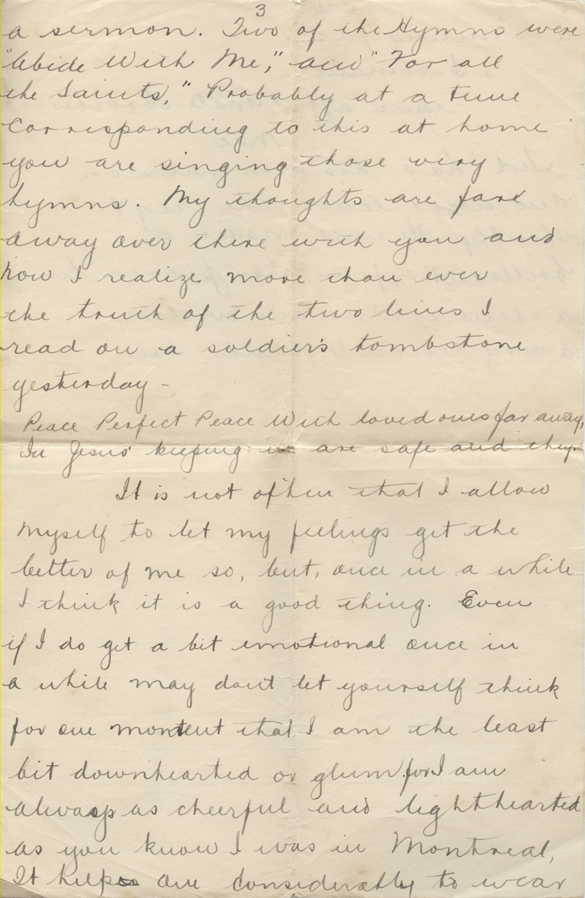 3
a sermon. Two of the Hymns were
"Abide With Me," and "For all
the Saints," Probably at a time
corresponding to this at home
you are singing those very
hymns. My thoughts are far
away over there with you and
how I realize more than ever
the truth of the two lines I
read on a soldier's tombstone
yesterday -
Peace Perfect Peace With loved ones far away,
In Jesus' keeping we are safe and they.
It is not often that I allow
myself to let my feelings get the
better of me so, but, once in a while
I think it is a good thing. Even
if I do get a bit emotional once in
a while may dont let yourself think
for one moment that I am the least
bit downhearted or glum for I am
always as cheerful and lighthearted
as you know I was in Montreal,
It helps one considerably to wear